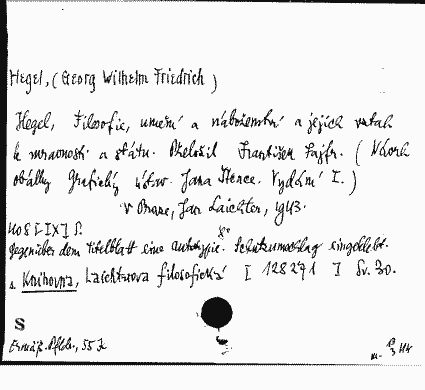 Hegel, (Georg Wilhelm Friedrich)
Hegel, Filosofie, umění a náboženství a jejich vztah
k mravnosti a státu. Přeložil František Fajfr. (Návrh
obálky Grafický ústav Jana Štence. Vydání I.)
V Praze, Jan Laichter, 1943.
408 [-IX] S.
8°
gegenüber dem Titelblatt eine Schutzumschlag eingeklebt.
s. Knihovna, Laichterova filosofická [128271] Sv. 30.
S
55 K